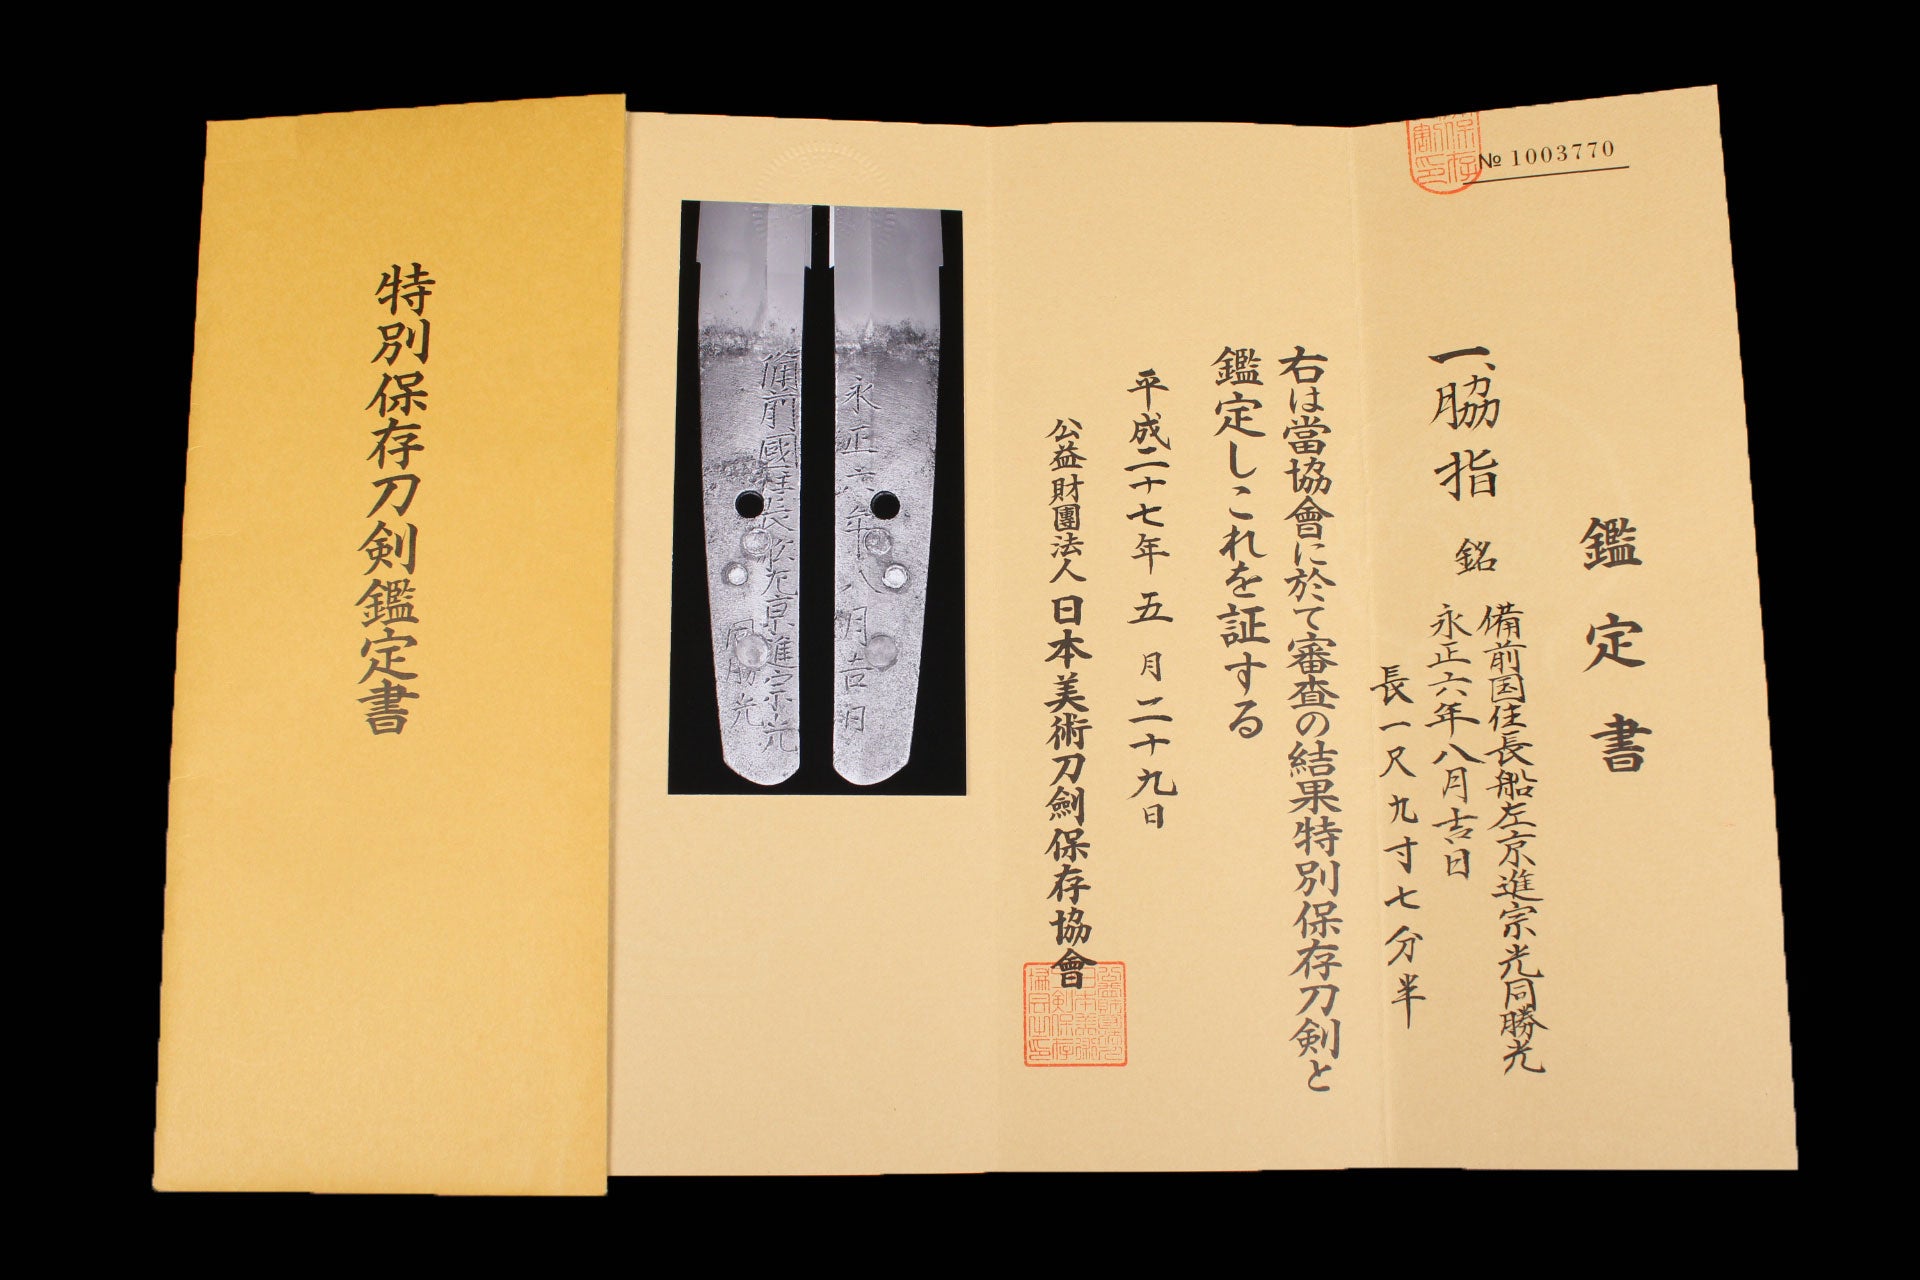 特別保存刀剣鑑定書
№ 1003770
鑑定書
一、脇指 銘 備前国住長船左京進宗光同勝光
永正六年八月吉日
長一尺九寸七分半
右は當協會に於て審査の結果特別保存刀剣と
鑑定しこれを証する
平成二十七年五月二十九日
公益財團法人日本美術刀劍保存協會
永正六年八月吉日
備前國住長船左京進宗光
同勝光